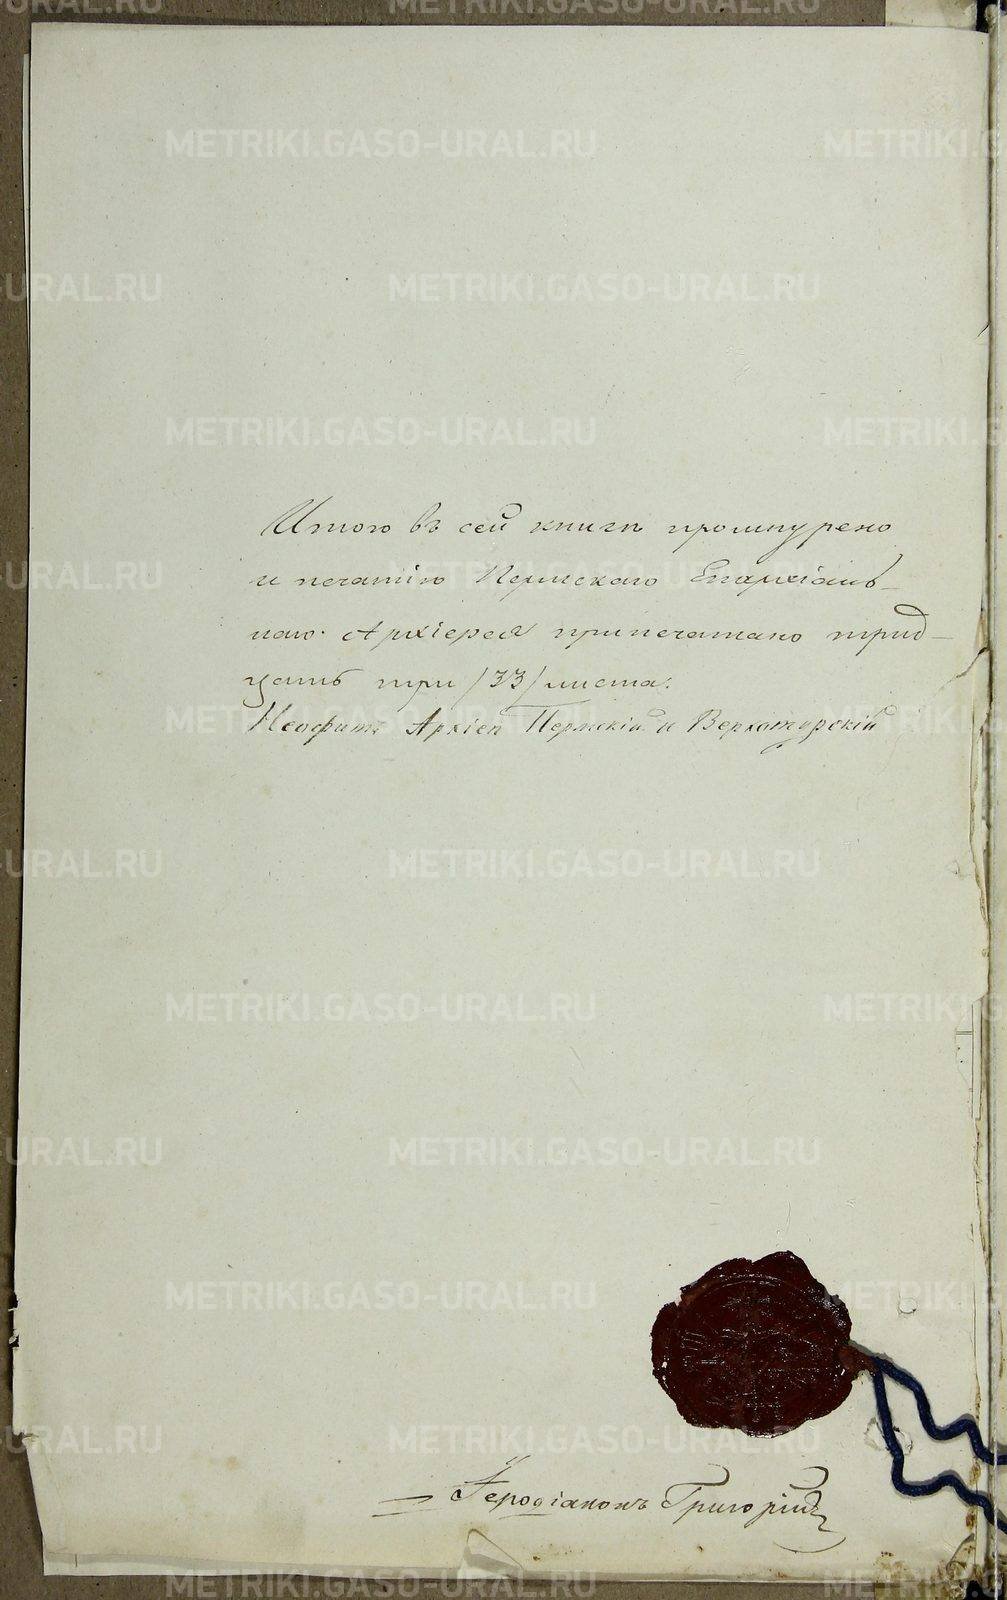 Итого въ сей книгѣ прошнурено
и печатію Пермскаго Епархіаль-
наго Архіерея припечатано трид-
цать три /33/ листа.
Неофитъ Архіеп Пермскій и Верхотурскій
Іеродіаконъ Григорій
METRIKI.GASO-URAL.RU